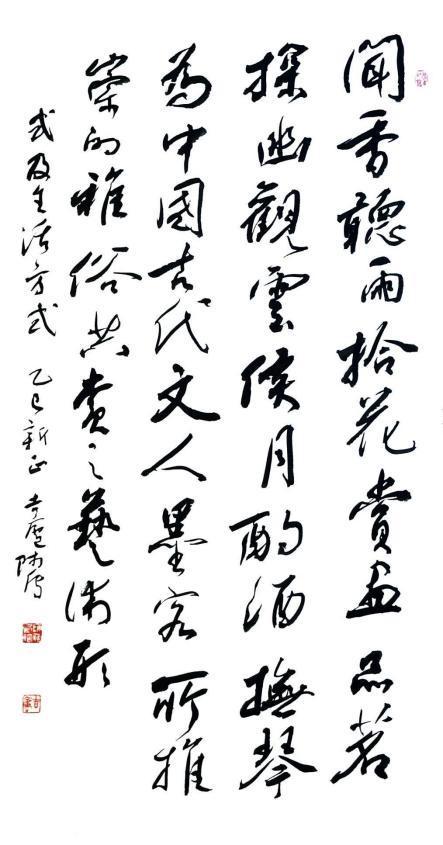 聞香聽雨拾花賞画品茗
探幽觀雲候月酌酒撫琴
為中國古代文人墨客所推
崇的雅俗共賞之藝術形
式及生活方式 乙巳新正